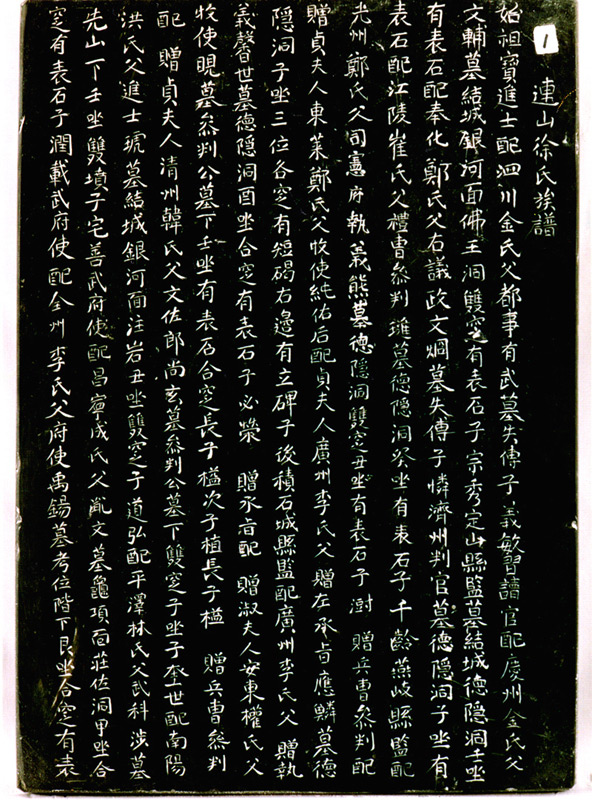 1
連山徐氏族譜
始祖寶進士配泗川金氏父都事有武墓失傳子義敏習讀官配慶州金氏父
文輔墓結城銀河面佛王洞雙窆有表石子宗秀定山縣監墓結城德隱洞壬坐
有表石配奉化鄭氏父右議政文烱墓失傳子憐濟州判官墓德隱洞子坐有
表石配江陵崔氏父禮曺叅判璡墓德隱洞癸坐有表石子千齡燕岐縣監配
光州鄭氏父司憲府執義熊墓德隱洞雙窆丑坐有表石子澍 贈兵曺叅判配
贈貞夫人東萊鄭氏父牧使純佑后配貞夫人廣州李氏父 贈左承旨應鱗墓德
隱洞子坐三位各窆有短碣右邊有立碑子後積石城縣監配廣州李氏父 贈執
義馨世墓德隱洞酉坐合窆有表石子必榮 贈承旨配 贈淑夫人安東權氏父
牧使晛墓叅判公墓下壬坐有表石合窆長子楹次子植長子楹 贈兵曺叅判
配 贈貞夫人清州韓氏父文佐郎尚玄墓叅判公墓下雙窆子坐子奎世配南陽
洪氏父進士琥墓結城銀河面注岩丑坐雙窆子道弘配平澤林氏父武科涉墓
先山下壬坐雙墳子宅善武府使配昌寧成氏父胤文墓龜項面莊佐洞甲坐合
窆有表石子潤載武府使配全州李氏父府使禹錫墓考位階下艮坐合窆有表